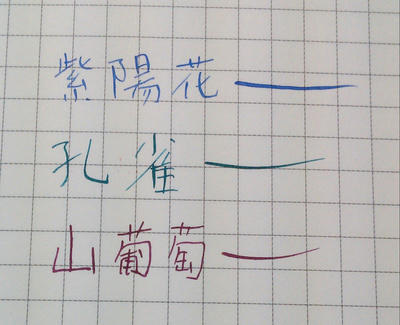 紫陽花
孔雀
山葡萄